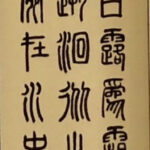 白露爲霜
遡洄從之
宛在水中